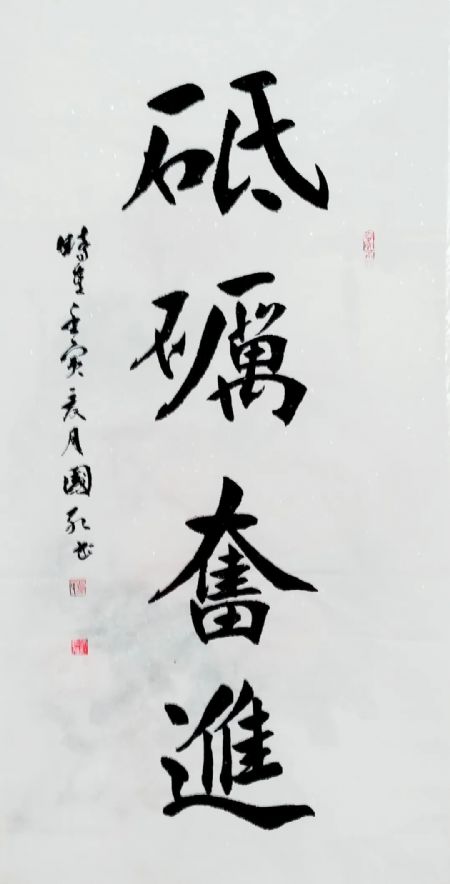 砥礪奮進
時在壬寅夏月國礼书